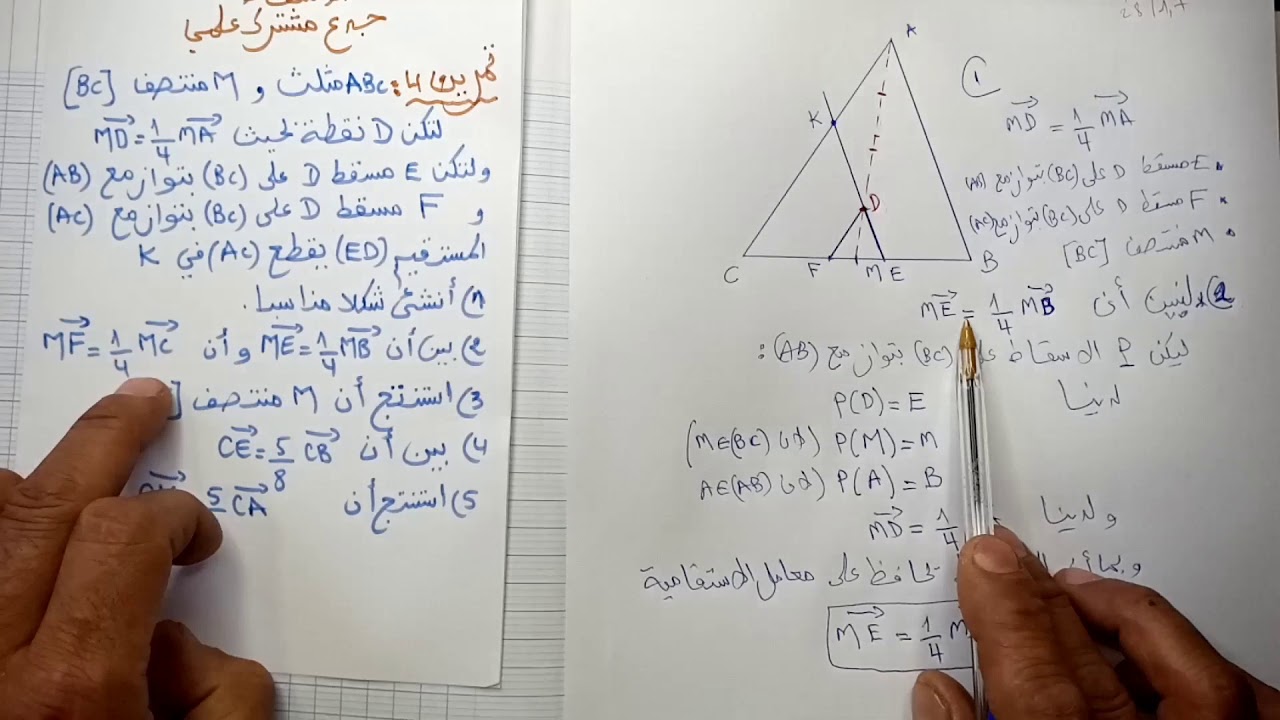 جذع مشترك علمي
تمرين 4: ABC مثلث و M منتصف [BC]
لتكن D نقطة بحيث MD = 1/4 MA
ولتكن E مسقط D على (BC) بتواز مع (AB)
و F مسقط D على (BC) بتواز مع (AC)
المستقيم (ED) يقطع (AC) في K
1) أنشئ شكلا مناسبا.
2) بين أن ME = 1/4 MB و أن MF = 1/4 MC
3) استنتج أن M منتصف [
4) بين أن CE = 5/8 CB
5) استنتج أن 5 CA
A
K
D
C F M E B
1
MD = 1/4 MA
E مسقط D على (BC) بتواز مع (AB)
F مسقط D على (BC) بتواز مع (AC)
M منتصف [BC]
2) لنبين أن ME = 1/4 MB
ليكن P الاسقاط (BC) بتواز مع (AB):
لدينا
P(D) = E
P(M) = M (لأن M∈(BC)
P(A) = B (لأن A∈(AB)
ولدينا MD = 1/4
وبما أن تحافظ على معامل الاستقامية
ME = 1/4 M